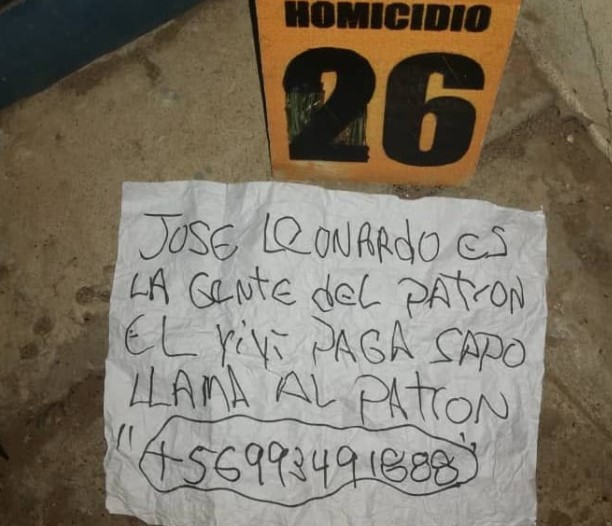 HOMICIDIO
26
JOSE LEONARDO ES
LA GENTE DEL PATRON
EL YIYI PAGA SAPO
LLAMA AL PATRON